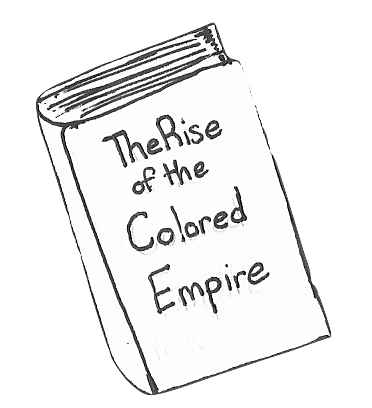 The Rise
of the
Colored
Empire